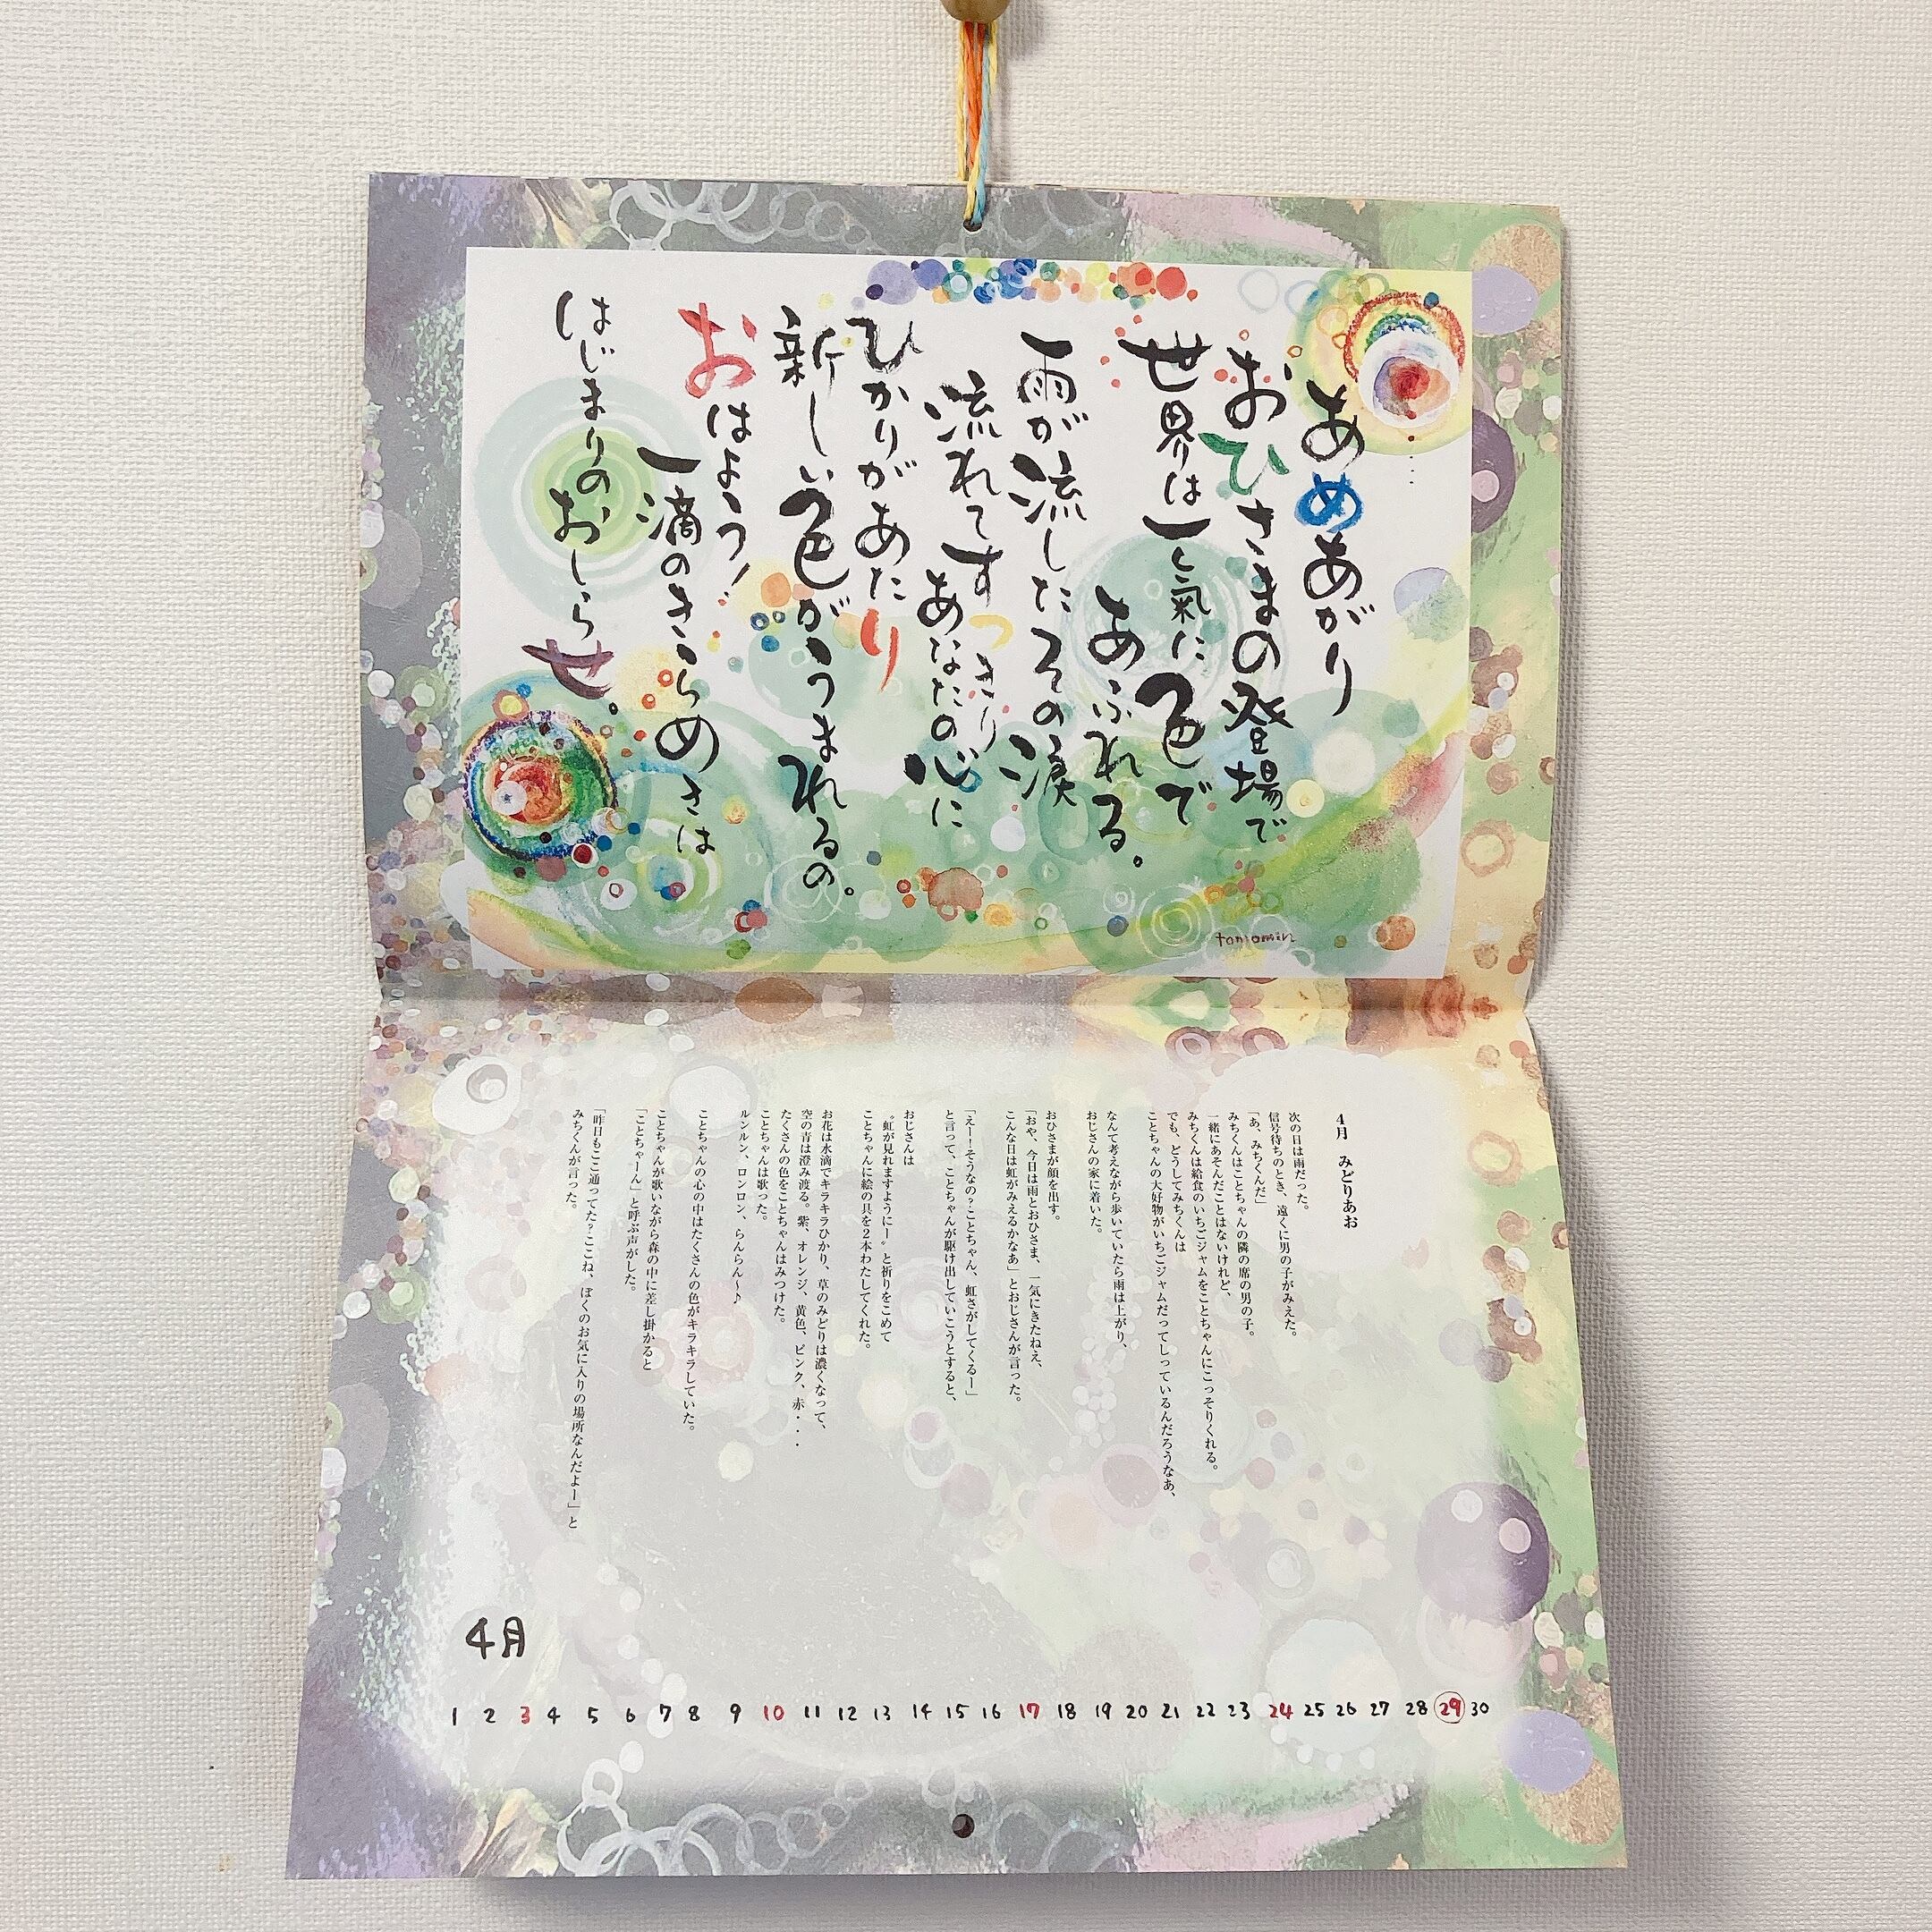 あめあがり
おひさまの登場で
世界は一氣に色で
あふれる。
雨が流したその涙
流れてすっきり
あなたの心に
ひかりがあたり
新しい色がうまれるの。
おはよう!
一滴のきらめきは
はじまりのおしらせ。
tomomin
4月 みどりあお
次の日は雨だった。
信号待ちのとき、遠くに男の子がみえた。
「あ、みちくんだ」
みちくんはことちゃんの隣の席の男の子。
一緒にあそんだことはないけれど、
みちくんは給食のいちごジャムをことちゃんにこっそりくれる。
でも、どうしてみちくんは
ことちゃんの大好物がいちごジャムだってしっているんだろうなあ、
なんて考えながら歩いていたら雨は上がり、
おじさんの家に着いた。
おひさまが顔を出す。
「おや、今日は雨とおひさま、一気にきたねえ、
こんな日は虹がみえるかなあ」とおじさんが言った。
「えー!そうなの?ことちゃん、虹さがしてくるー」
と言って、ことちゃんが駆け出していこうとすると、
おじさんは
〝虹が見れますようにー〟と祈りをこめて
ことちゃんに絵の具を2本わたしてくれた。
お花は水滴でキラキラひかり、草のみどりは濃くなって、
空の青は澄み渡る。紫、オレンジ、黄色、ピンク、赤・・・
たくさんの色をことちゃんはみつけた。
ことちゃんは歌った。
ルンルン、ロンロン、らんらん〜♪
ことちゃんの心の中はたくさんの色がキラキラしていた。
ことちゃんが歌いながら森の中に差し掛かると
「ことちゃーん」と呼ぶ声がした。
「昨日もここ通ってた?ここね、ぼくのお気に入りの場所なんだよー」と
みちくんが言った。
4月
1 2 3 4 5 6 7 8 9 10 11 12 13 14 15 16 17 18 19 20 21 22 23 24 25 26 27 28 29 30